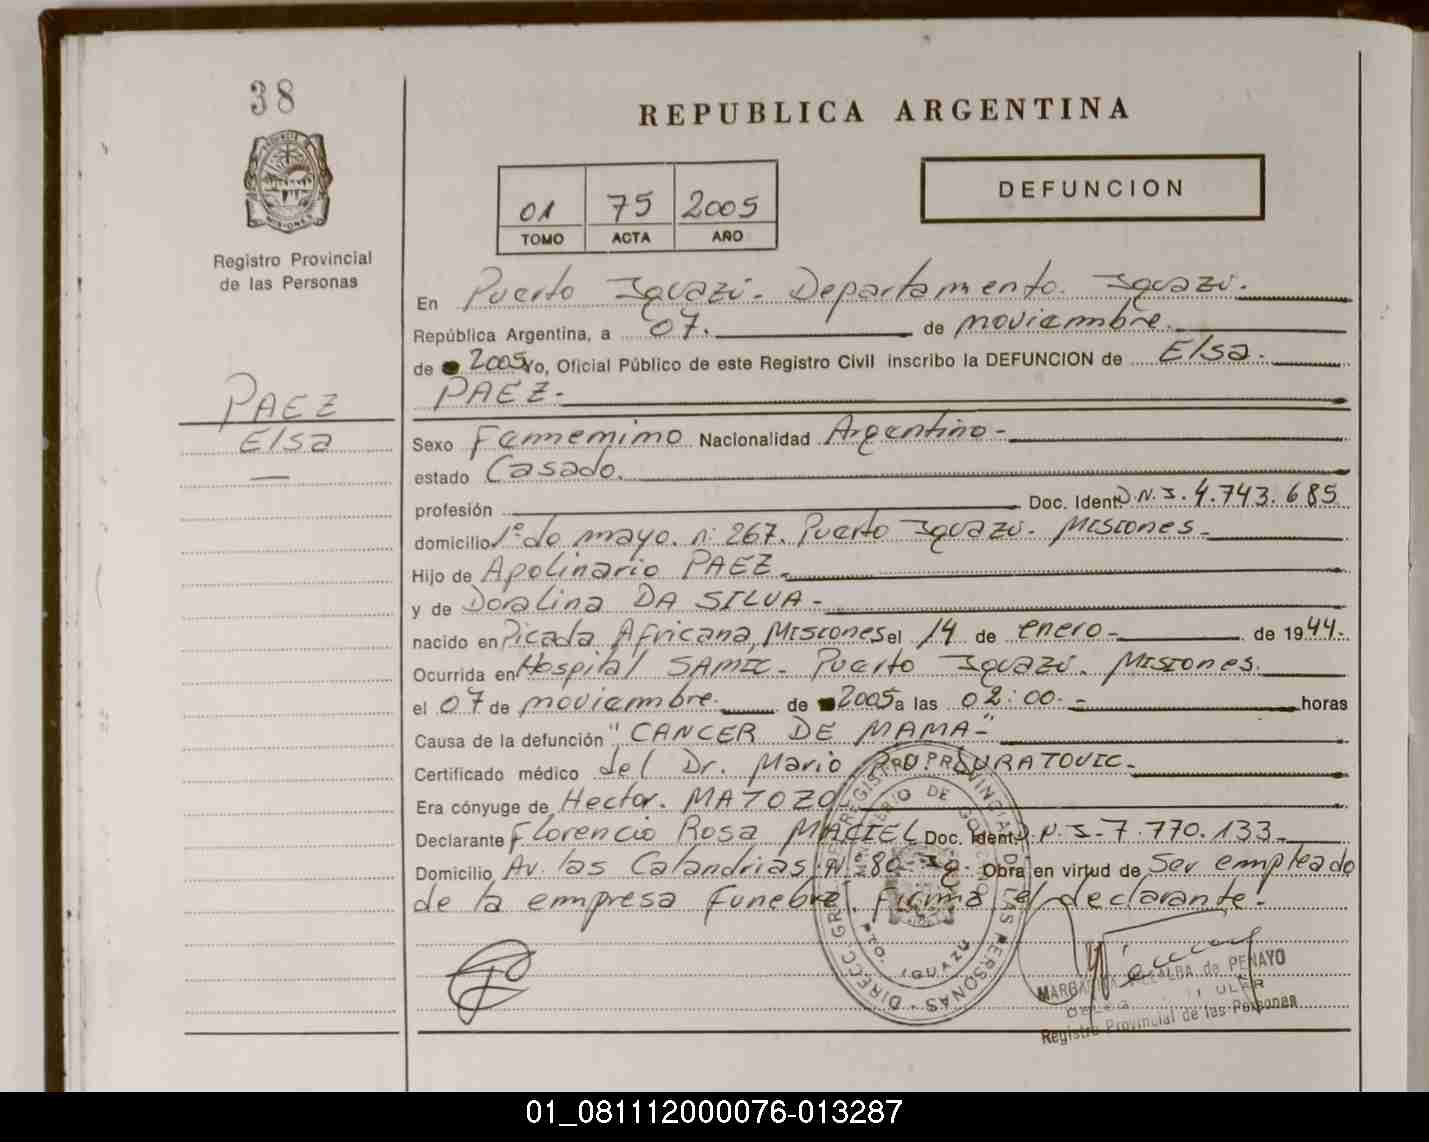 38
REPUBLICA ARGENTINA
01 75 2005
TOMO ACTA AÑO
DEFUNCION
Registro Provincial
de las Personas
PAEZ
Elsa
En Puerto Iguazú - Departamento. Iguazú.
República Argentina, a 07. de noviembre
de 2005 Yo, Oficial Público de este Registro Civil inscribo la DEFUNCION de Elsa.
PAEZ-
Sexo Femenino Nacionalidad Argentino-
estado Casado.
profesión Doc. Ident. D.N.I. 4.743.685
domicilio 1º de mayo. nº 267. Puerto Iguazú - Misiones-
Hijo de Apolinario PAEZ-
y de Doralina DA SILVA-
nacido en Picada Africana, Misiones el 14 de enero- de 1944-
Ocurrida en Hospital SAMIC- Puerto Iguazú. Misiones.
el 07 de noviembre. de 2005 a las 02:00.- horas
Causa de la defunción "CANCER DE MAMA-"
Certificado médico del Dr. Mario
Era cónyuge de Hector. MATOZO
Declarante Florencio Rosa MACIEL Doc. Ident. D.N.I-7.770.133-
Domicilio Av. las Calandrias. Nº 80- Ig. Obra en virtud de Ser empleado
de la empresa Funebre. Firma el declarante.
PTO. IGUAZU
REGISTRO PROVINCIAL DE LAS PERSONAS
de PENAYO
Registro Provincial de las Personas
01_081112000076-013287